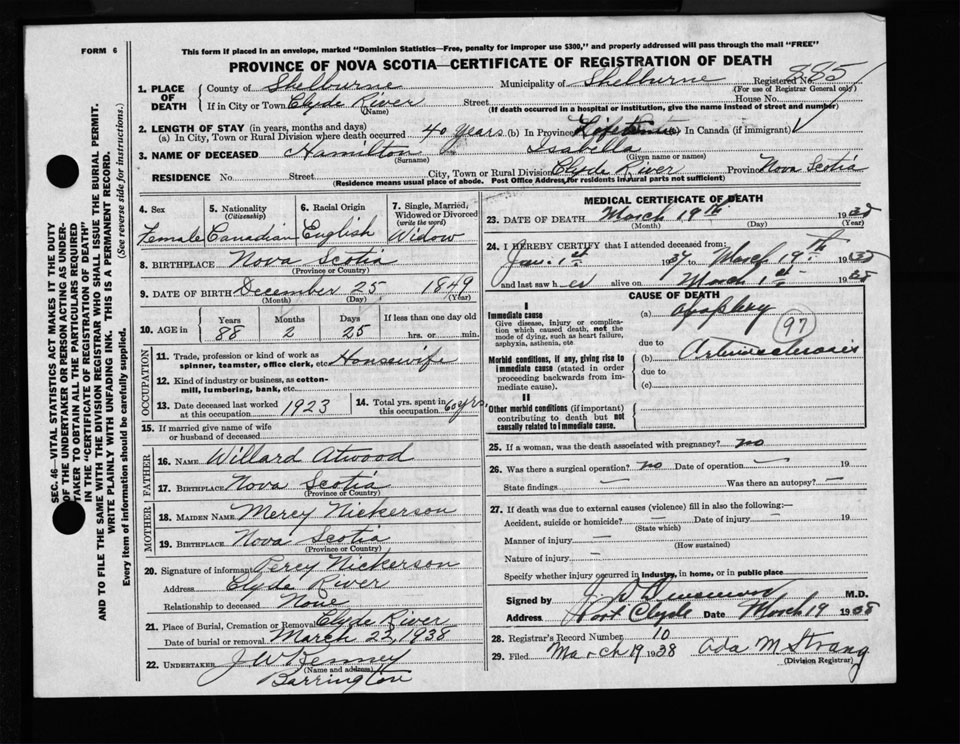 FORM 6
This form if placed in an envelope, marked "Dominion Statistics—Free, penalty for improper use $300," and properly addressed will pass through the mail "FREE"
PROVINCE OF NOVA SCOTIA—CERTIFICATE OF REGISTRATION OF DEATH
SEC. 46—VITAL STATISTICS ACT MAKES IT THE DUTY
OF THE UNDERTAKER OR PERSON ACTING AS UNDER-
TAKER TO OBTAIN ALL THE PARTICULARS REQUIRED
IN THE "CERTIFICATE OF REGISTRATION OF DEATH"
AND TO FILE THE SAME WITH THE DIVISION REGISTRAR WHO SHALL ISSUE THE BURIAL PERMIT.
WRITE PLAINLY WITH UNFADING INK. THIS IS A PERMANENT RECORD.
Every item of information should be carefully supplied. (See reverse side for instructions.)
1. PLACE OF DEATH County of Shelburne Municipality of Shelburne Registered No. 885
(For use of Registrar General only)
If in City or Town Clyde River Street House No.
(Name) (If death occurred in a hospital or institution, give the name instead of street and number)
2. LENGTH OF STAY (in years, months and days)
(a) In City, Town or Rural Division where death occurred 40 years (b) In Province Lifetime (c) In Canada (if immigrant)
3. NAME OF DECEASED Hamilton Isabella
(Surname) (Given name or names)
RESIDENCE No. Street City, Town or Rural Division Clyde River Province Nova Scotia
(Residence means usual place of abode. Post Office Address for residents in rural parts not sufficient)
4. Sex Female
5. Nationality (Citizenship) Canadian
6. Racial Origin English
7. Single, Married, Widowed or Divorced (write the word) Widow
8. BIRTHPLACE Nova Scotia
(Province or Country)
9. DATE OF BIRTH December 25 1849
(Month) (Day) (Year)
10. AGE in Years 88 Months 2 Days 25 If less than one day old hrs. or min.
OCCUPATION
11. Trade, profession or kind of work as spinner, teamster, office clerk, etc. Housewife
12. Kind of industry or business, as cotton-mill, lumbering, bank, etc.
13. Date deceased last worked at this occupation 1923
14. Total yrs. spent in this occupation 60 yrs.
15. If married give name of wife or husband of deceased
FATHER
16. NAME Willard Atwood
17. BIRTHPLACE Nova Scotia
(Province or Country)
MOTHER
18. MAIDEN NAME Mercy Nickerson
19. BIRTHPLACE Nova Scotia
(Province or Country)
20. Signature of informant Percy Nickerson
Address Clyde River
Relationship to deceased None
21. Place of Burial, Cremation or Removal Clyde River
Date of burial or removal March 22, 1938
22. UNDERTAKER J W Kenney
(Name and address)
Barrington
MEDICAL CERTIFICATE OF DEATH
23. DATE OF DEATH March 19th 1938
(Month) (Day) (Year)
24. I HEREBY CERTIFY that I attended deceased from:
Jan. 1st 1937 to March 19th 1938
and last saw her alive on March 1st 1938
CAUSE OF DEATH
I
Immediate cause
Give disease, injury or complication which caused death, not the mode of dying, such as heart failure, asphyxia, asthenia, etc.
(a) Apoplexy
97
due to
Morbid conditions, if any, giving rise to immediate cause (stated in order proceeding backwards from immediate cause).
(b) Arteriosclerosis
due to
(c)
II
Other morbid conditions (if important) contributing to death but not causally related to immediate cause.
25. If a woman, was the death associated with pregnancy? no
26. Was there a surgical operation? no Date of operation — 19
State findings — Was there an autopsy? —
27. If death was due to external causes (violence) fill in also the following:—
Accident, suicide or homicide? — Date of injury — 19
(State which)
Manner of injury —
(How sustained)
Nature of injury —
Specify whether injury occurred in industry, in home, or in public place
Signed by M.D.
Address Port Clyde Date March 19 1938
28. Registrar's Record Number 10
29. Filed March 19 1938 Ada M Strang
(Division Registrar)